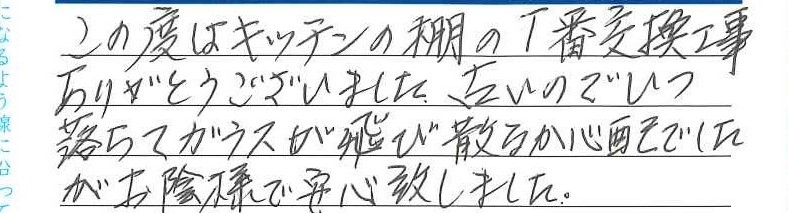 この度はキッチンの棚の丁番交換工事
ありがとうございました。古いのでいつ
落ちてガラスが飛び散るか心配でした
がお陰様で安心致しました。
になるよう線に沿って